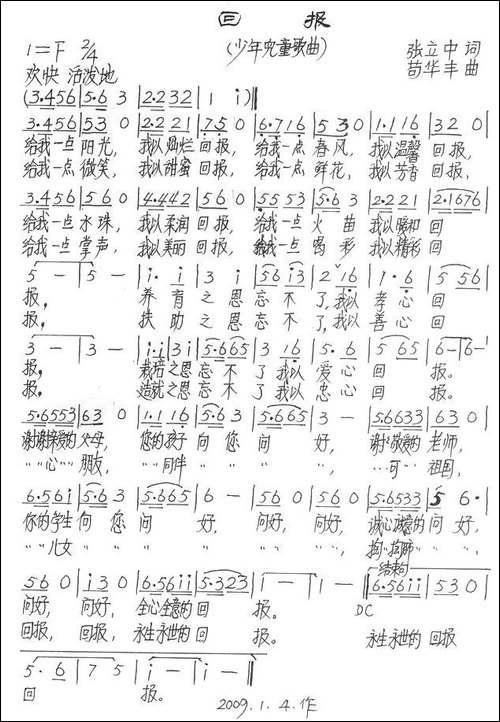 回 报
1=F 2/4 (少年儿童歌曲) 张立中 词
欢快 活泼地 苟华丰 曲
(3.456|5.6 3|2.232|1 i)‖
3.456|53 0|2.2 21|7.5 0|6.716|5 3 0|1.1 16|32 0|
给我一点 阳光, 我以 灿烂 回报, 给我一点 春风, 我以温馨 回报,
给我一点 微笑, 我以 甜蜜 回报, 给我一点 鲜花, 我以芳香 回报,
3.456|56 0|4.442|56 0|55 53|5.6 3|2.2 21|2.1676|
给我一点 水珠, 我以柔润 回报, 给我一点 火 苗 我以暖和 回
给我一点 掌声, 我以美丽 回报, 给我一点 喝 彩 我以精彩 回
5 -|5 -|i. i|3 i|56 i3|2ˇ16|1. 6|5 56|
报, 养 育 之 恩 忘 不 了,我以 孝 心 回
报, 扶 助 之 恩 忘 不 了,我以 善 心 回
3 -|3 -|i.i|3i|5.665|3 16|5. 6|5 65|6-|6-|
报, 栽培之恩 忘 不 了 我以 爱 心 回 报。
报, 造就之恩 忘 不 了 我以 忠 心 回 报。
5.6553|63 0|1.1 16|5.6 3|5.665|3 -|5.6633|63 0|
谢谢亲爱的 父母, 您的孩子 向 您 问 好, 谢〃敬爱的 老师,
〃〃心〃 朋友, 〃〃同伴 〃 〃 〃 〃, 〃〃可〃 祖国,
6.56i|5.6 3|5.665|6 -|56 0|56 0|5.6533|5 6.|
你的学生 向 您 问 好, 问好, 问好, 诚心诚意的 问 好,
〃〃儿女 〃 〃 〃 〃 〃〃, 〃〃,
结束句
56 0|i3 0|6.56ii|5.323|i -|i -‖6.56ii|53 0|
问好, 问好, 全心全意的 回 报。 DC
回报, 回报, 永生永世的 回 报。 永生永世的 回报
5. 6|7 5|i -|i -‖
回 报。 2009.1.4.作